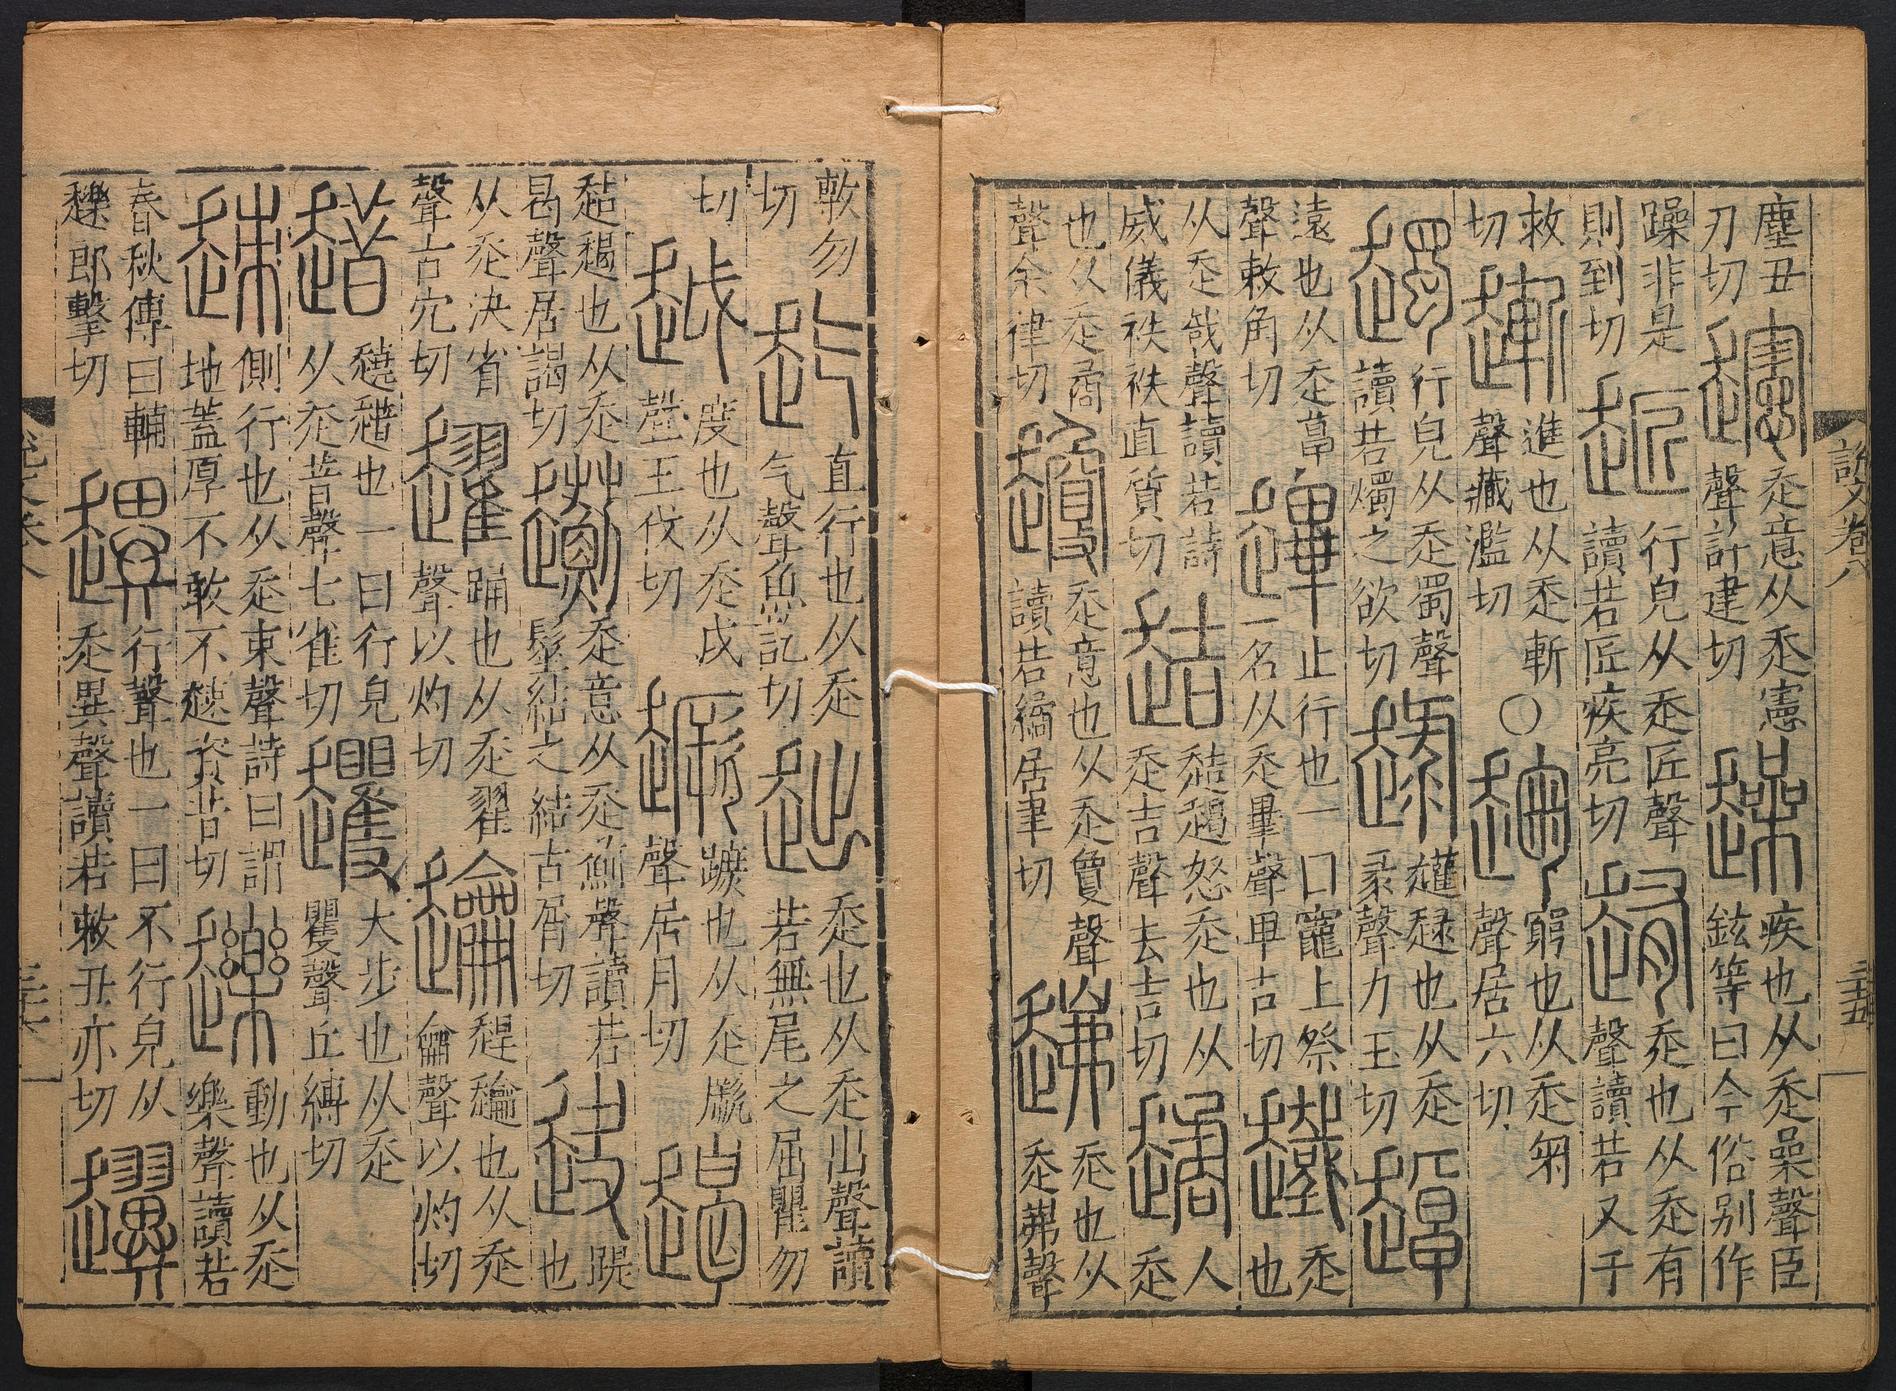 說文卷八
三十五
塵丑
刃切
𧾨
走意从走憲
聲許建切
趮
疾也从走喿聲臣
鉉等曰今俗別作
躁非是
則到切
行皃从走匠聲
讀若匠疾亮切
䞥
走也从走有
聲讀若又于
救
切
進也从走斬
聲藏濫切
○
趜
窮也从走匊
聲居六切
行皃从走蜀聲
讀若燭之欲切
趢
趢也从走
录聲力玉切
趠
遠也从走卓
聲敕角切
止行也一曰竈上祭
一名从走畢聲卑吉切
走
也
从走𢧜聲讀若詩
威儀秩秩直質切
趌
趌䞿怒走也从
走吉聲去吉切
人
走
也从走矞
聲余律切
走意也从走敻聲
讀若繘居聿切
走也从
走弗聲
敷勿
切
䞘
直行也从走
气聲魚訖切
䞷
走也从走出聲讀
若無尾之屈瞿勿
切
越
度也从走戉
聲王伐切
蹶也从走厥
聲居月切
䞿
趌䞿也从走
曷聲居謁切
走意从走薊聲讀若
髽結之結古屑切
踶
也
从走決省
聲古穴切
趯
踊也从走翟
聲以灼切
趠也从走
龠聲以灼切
趞
趬趞也一曰行皃
从走昔聲七雀切
大步也从走
瞿聲丘縛切
趚
側行也从走朿聲詩曰謂
地蓋厚不敢不趚資昔切
動也从走
樂聲讀若
春秋傳曰輔
郎擊切
趩
行聲也一曰不行皃从
走異聲讀若敕丑亦切
說文卷八
三十六